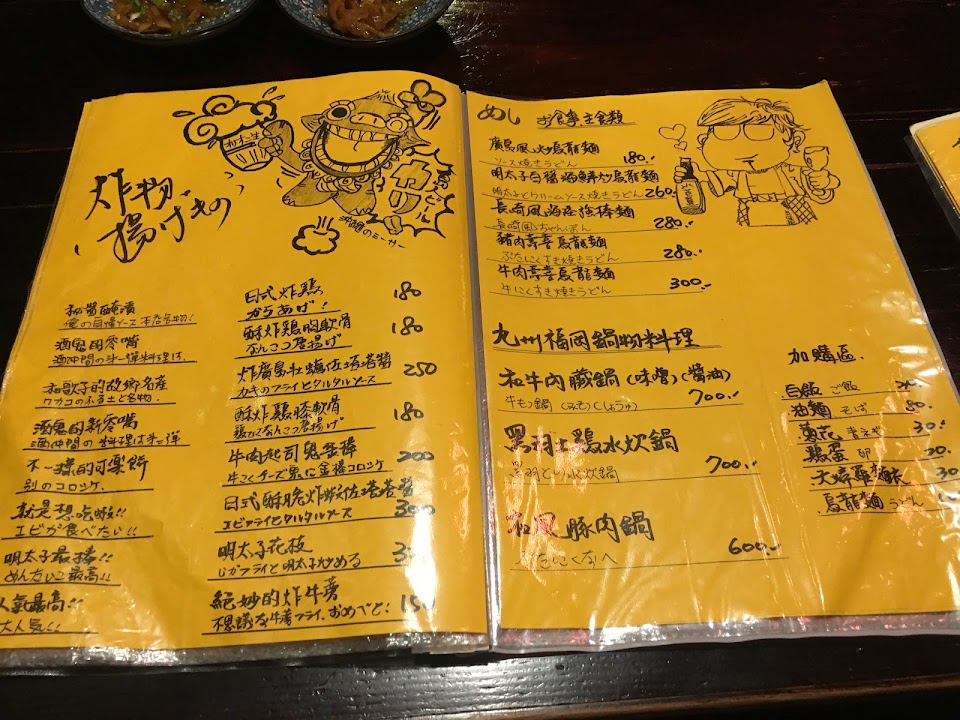 炸物
揚げもの
沖縄のミーサー
秘醬醃漬
俺の自慢ソース 本店名物!
酒鬼的零嘴
酒仲間の斗一弾料理は。
和歌子的故郷名産
ワカコのふる土と名物。
酒鬼的新零嘴
酒仲間の料理は
不一樣的可樂餅
別のコロッケ。
就是想吃蝦!!
エビが食べたい!!
明太子最棒!!
めんたいこ最高!!
人氣最高!!
大人気!!
日式炸鶏 180
からあげ!
酥炸鶏胸軟骨 180
なんこつ唐揚げ
炸廣島牡蠣佐塔塔醬 250
カキのフライとタルタルソース
酥炸鶏膝軟骨 180
鶏ひざなんこつ唐揚げ
牛肉起司 200
日式酥脆炸蝦佐塔塔醬 300
エビフライとタルタルソース
明太子花枝
いかフライと明太子炒める
絶妙的炸牛蒡 150
不思議な牛蒡フライ、おめべと!
めし お食事、主食類
廣島風炒烏龍麺 180.-
ソース焼きうどん
明太子白醬海鮮炒烏龍麺 260.-
明太子とクリームソース焼きうどん
長崎風海産強棒麺 280.-
長崎風ちゃんぽん
豬肉壽喜烏龍麺 280.-
ぶたにくすき焼きうどん
牛肉壽喜烏龍麺 300.-
牛にくすき焼きうどん
九州福岡鍋物料理
和牛内臟鍋(味噌)(醬油) 700.-
牛もつ鍋(みそ)(しょうゆ)
黑羽土鶏水炊鍋 700.-
黒羽とり水炊鍋
和風豚肉鍋 600.-
加購區.
白飯 ご飯
油麵 そば 80.-
菊花 30.-
鶏蛋 卵 20.-
烏龍麵 うどん